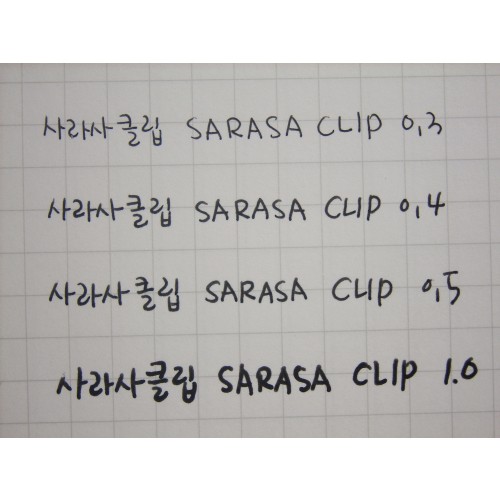 사라사클립 SARASA CLIP 0,3
사라사클립 SARASA CLIP 0,4
사라사클립 SARASA CLIP 0,5
사라사클립 SARASA CLIP 1.0